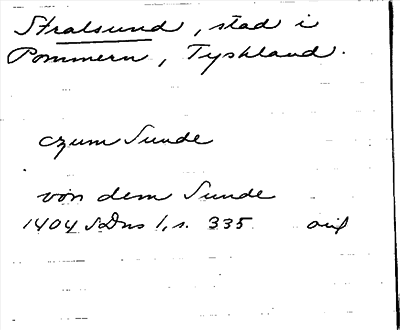 Stralsund, stad i
Pommern, Tyskland.
czum Sunde
von dem Sunde
1404 SDns 1, s. 335 orig